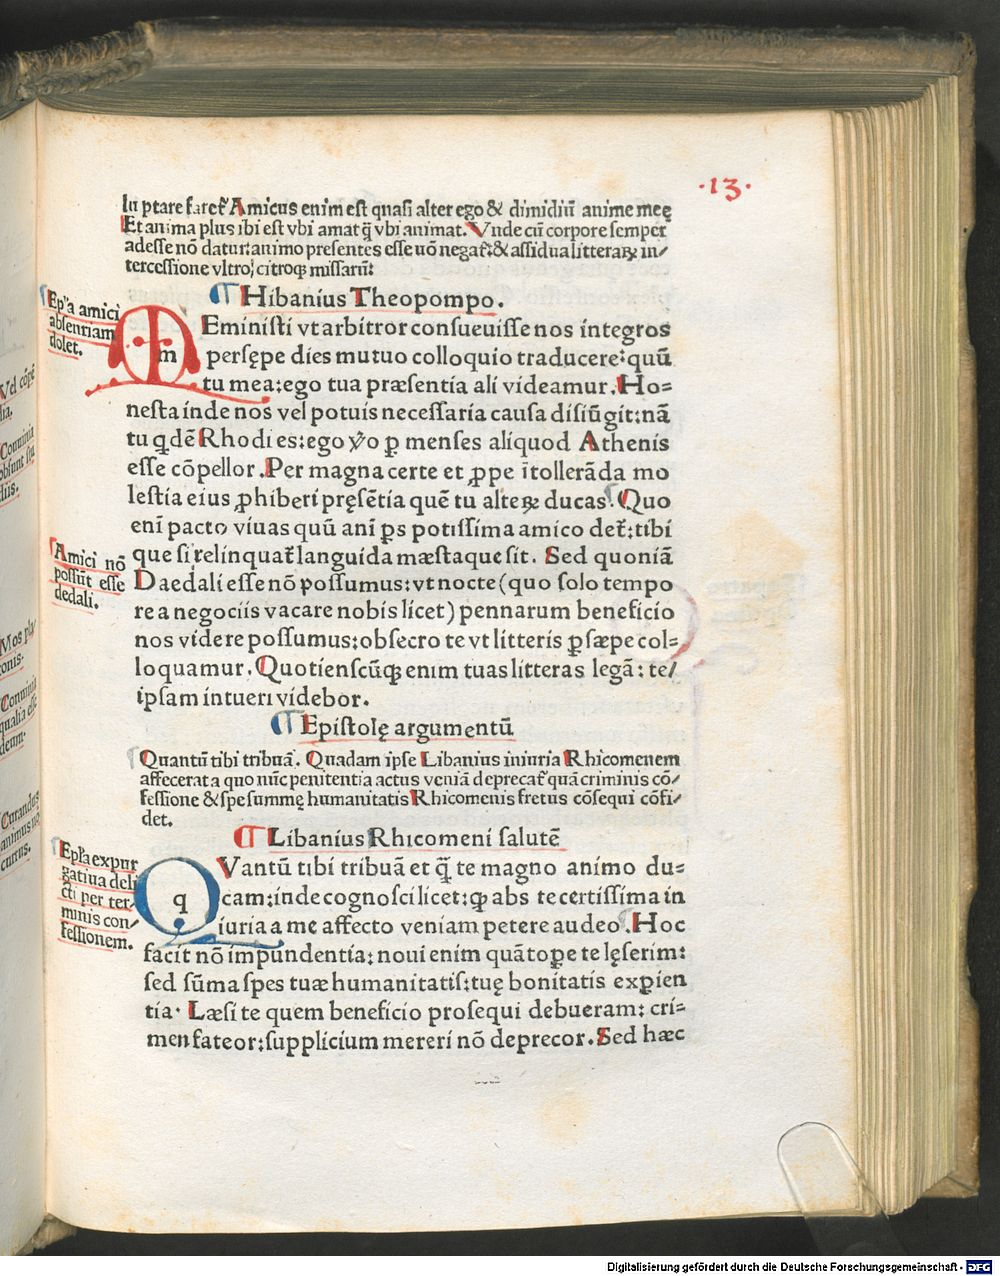 ·13·
luptare faret᷑ Amicus enim est quasi alter ego & dimidiū anime meę
Et anima plus ibi est vbi amat q̄ vbi animat. Vnde cū corpore semper
adesse nō datur: animo presentes esse uō negat᷑: & assidua litteraꝝ in/
tercessione vltro, citroqꝫ missarū:
¶ Hibanius Theopompo.
Ep̄a amici
absentiam
dolet.
mEministi vt arbitror consueuisse nos integros
persępe dies mutuo colloquio traducere: quū
tu mea: ego tua præsentia ali videamur. Ho=
nesta inde nos vel potuis necessaria causa disiūgit: nā
tu qdē Rhodi es: ego v̊o ꝑ menses aliquod Athenis
esse cōpellor. Per magna certe et ꝓpe ītollerāda mo
lestia eius ꝓhiberi pręsētia quē tu alteꝝ ducas. Quo
eni pacto viuas quū ani ꝑs potissima amico det᷑: tibi
que si relinquat᷑ languida mæstaque sit. Sed quoniā
Amici nō
possūt esse
dedali.
Daedali esse nō possumus: vt nocte (quo solo tempo
re a negociis vacare nobis licet) pennarum beneficio
nos videre possumus: obsecro te vt litteris ꝑsæpe col=
loquamur. Quotienscūqꝫ enim tuas litteras legā: te/
ipsam intueri videbor.
¶ Epistolę argumentū
Quantū tibi tribuā. Quadam ipse Libanius iniuria Rhicomenem
affecerat a quo nūc penitentia actus veniā deprecat᷑ quā criminis cō/
fessione & spe summę humanitatis Rhicomenis fretus cōsequi cōfi/
det.
¶ Libanius Rhicomeni salutē
Ep̄la expur
gatiua deli
cti per ter-
minis con/
fessionem.
qVantū tibi tribuā et q̄ te magno animo du=
cam: inde cognosci licet: ꝙ abs te certissima in
iuria a me affecto veniam petere audeo. Hoc
facit nō impundentia: noui enim quātoꝑe te lęserim:
sed sūma spes tuæ humanitatis: tuę bonitatis exꝑien
tia. Læsi te quem beneficio prosequi debueram: cri=
men fateor: supplicium mereri nō deprecor. Sed hæc
Vel
Conuiuia
Mos
Conuiuia
qualia
Curandus
animus
Digitalisierung gefördert durch die Deutsche Forschungsgemeinschaft - DFG